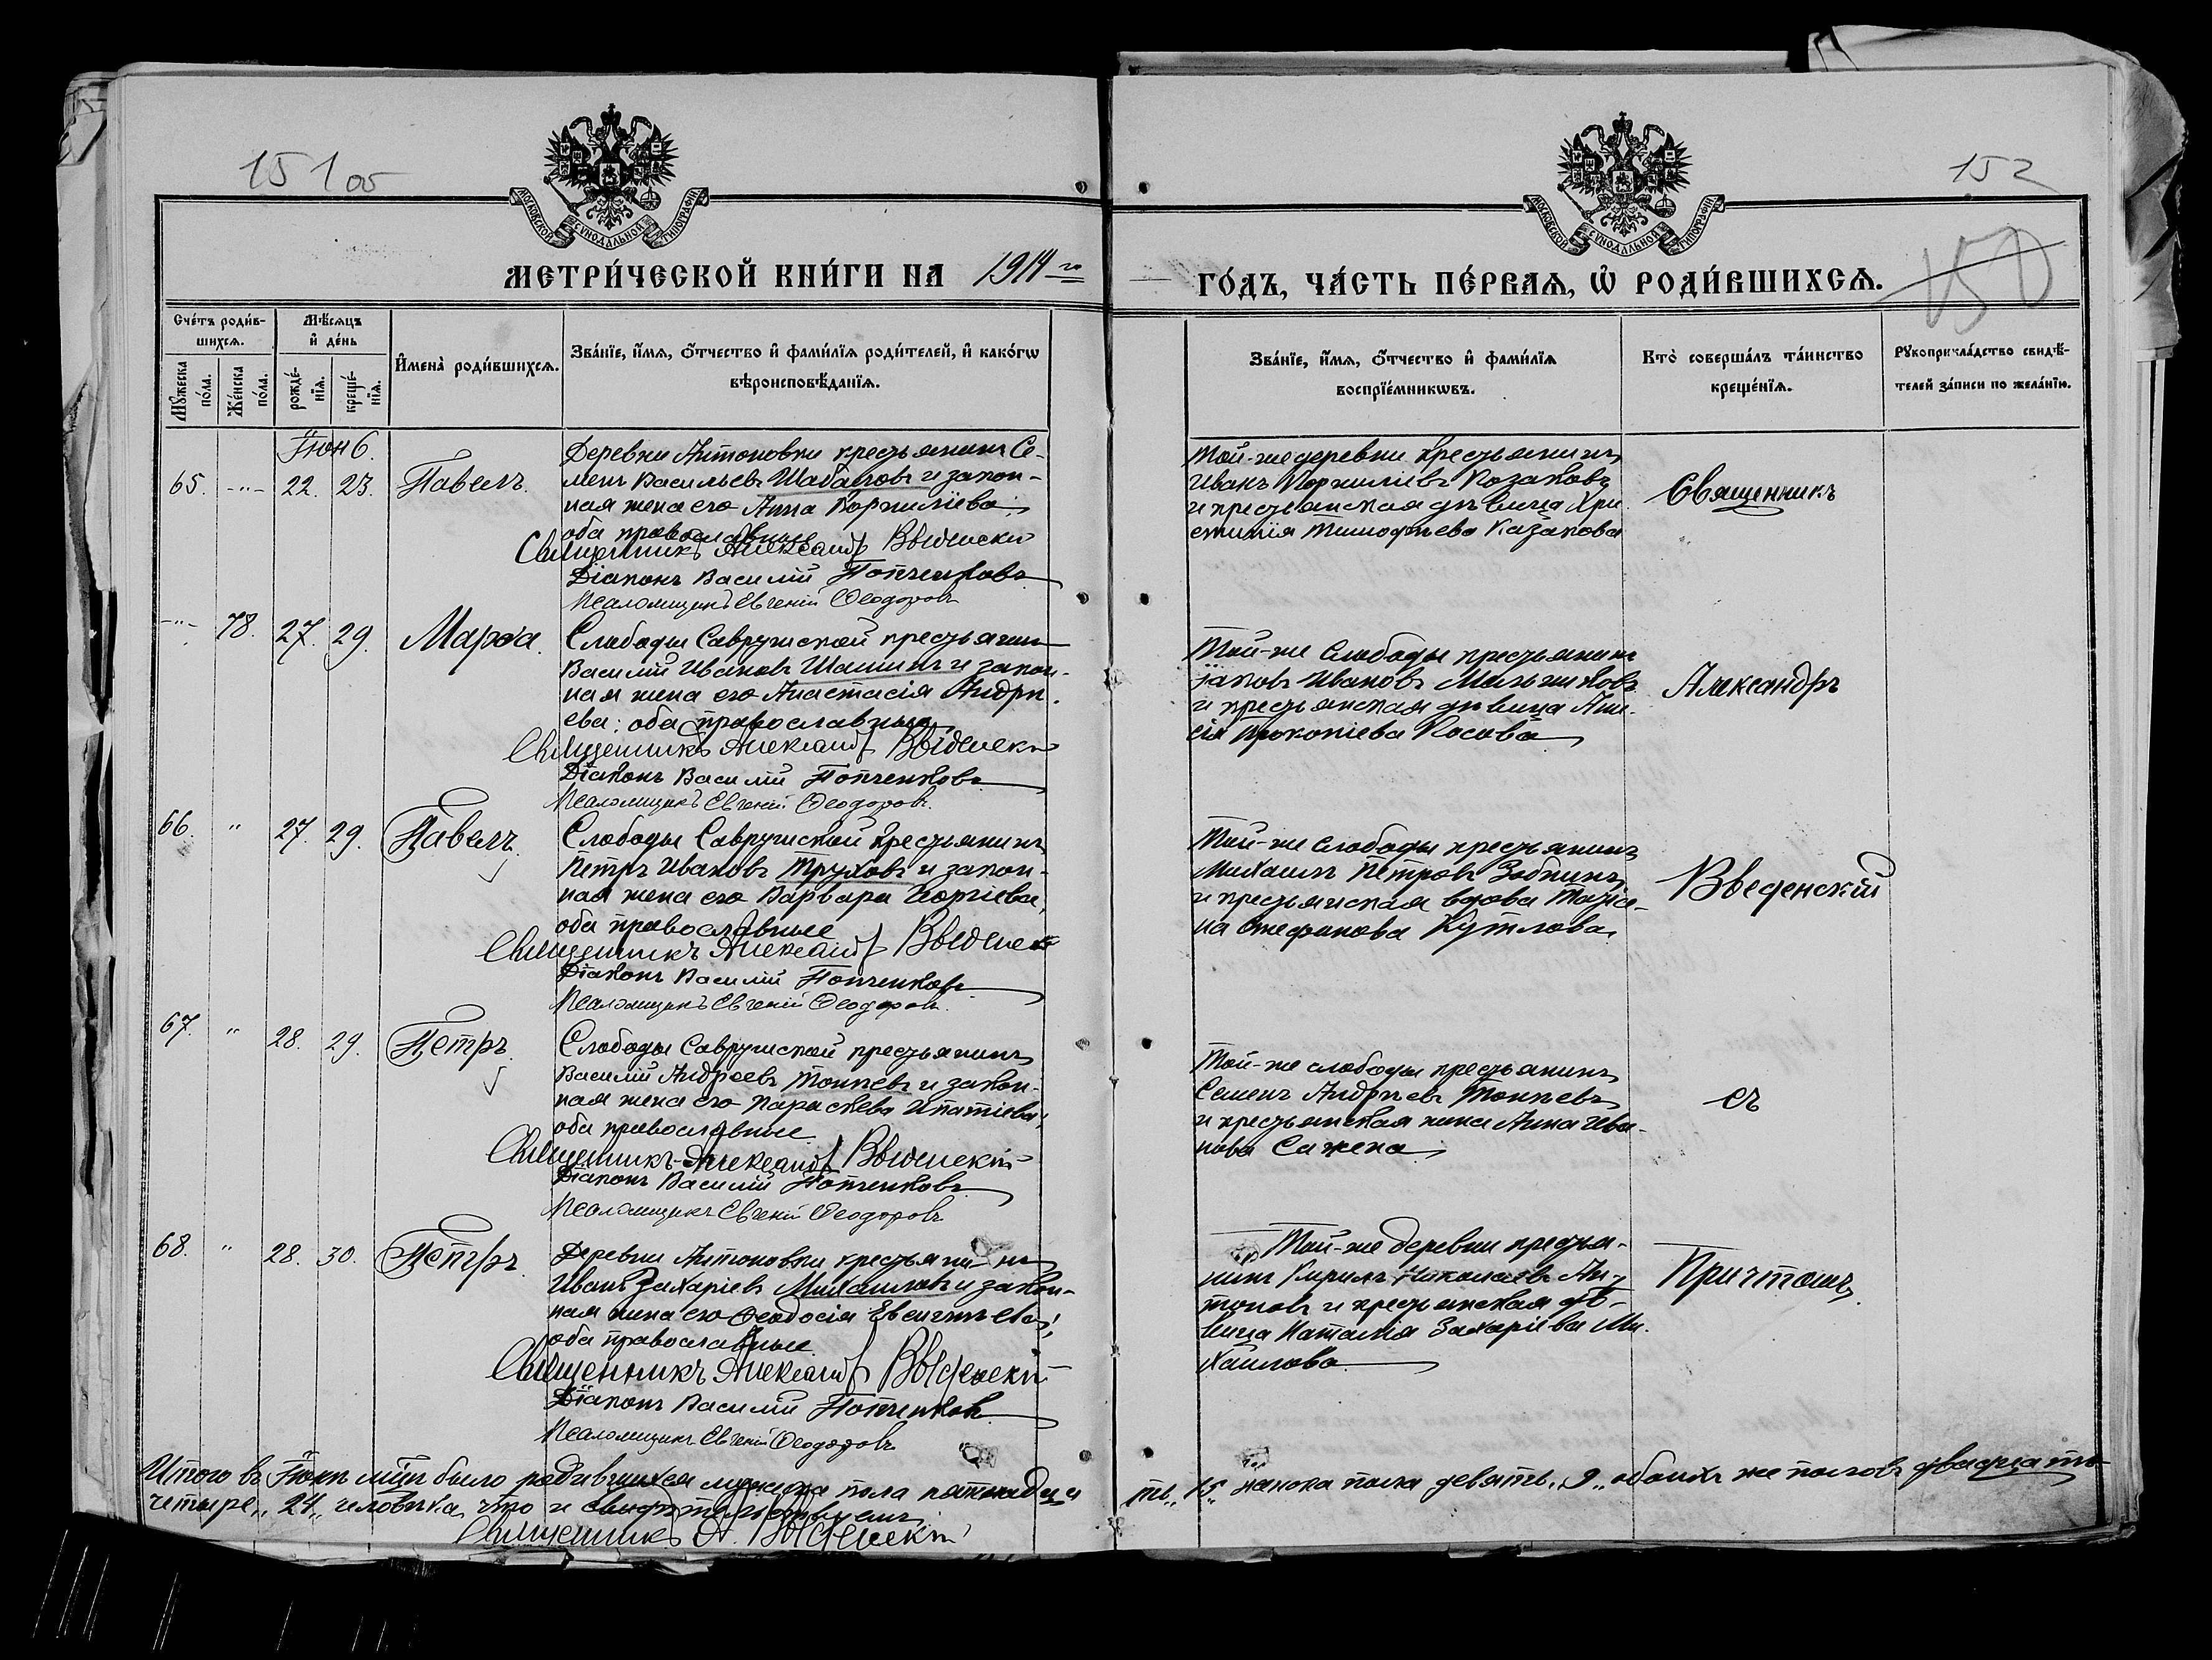 151об
152
150
МОСКОВСКОЙ СѴНОДАЛЬНОЙ ТИПОГРАФІИ
МОСКОВСКОЙ СѴНОДАЛЬНОЙ ТИПОГРАФІИ
МЕТРИ́ЧЕСКОЙ КНИ́ГИ НА 1914-го
ГО́ДЪ, ЧА́СТЬ ПЕ́РВАѦ, Ѡ҆ РОДИ́ВШИХСѦ.
Сче́тъ роди́в-
шихсѧ.
Мꙋжеска по́ла.
Же́нска по́ла.
Мѣ́сѧцъ
и҆ де́нь
рожде́-
нїѧ.
креще́-
нїѧ.
И҆мена̀ роди́вшихсѧ.
Зва́нїе, и҆́мѧ, ѻ҆́тчество и҆ фами́лїѧ роди́телей, и҆ како́гѡ
вѣроисповѣ́данїѧ.
Зва́нїе, и҆́мѧ, ѻ҆́тчество и҆ фами́лїѧ
воспрїе́мникѡвъ.
Кто̀ соверша́лъ та́инство
креще́нїѧ.
Рꙋкоприкла́дство свидѣ́-
телей за́писи по жела́нїю.
Іюнь
65. -"- 22. 23. Павелъ.
Деревни Антоновки крестьянинъ Се-
менъ Васильевъ Шабановъ и закон-
ная жена его Анна Корниліева,
оба православные
Священникъ Александръ Введенскій
Діаконъ Василій Попченковъ
Псаломщикъ Евгеній Ѳеодоровъ
Той-же деревни крестьянинъ
Иванъ Корниліевъ Козаковъ
и крестьянская дѣвица Хри
стинія Тимофѣева Казакова
Священникъ
-"- 78. 27. 29. Марѳа.
Слободы Савружской крестьянинъ
Василій Ивановъ Шашинъ и закон-
ная жена его Анастасія Андре-
ева: оба православные
Священникъ Александръ Введенскій
Діаконъ Василій Попченковъ
Псаломщикъ Евгеній Ѳеодоровъ.
Той-же слободы крестьянинъ
Іаковъ Ивановъ Мальчиковъ
и крестьянская дѣвица Ани-
сія Прокопіева Косова
Александръ
66. " 27. 29. Павелъ.
Слободы Савружской крестьянинъ
Петръ Ивановъ Труховъ и закон-
ная жена его Варвара Георгіева,
оба православные
Священникъ Александръ Введенскій
Діаконъ Василій Попченковъ
Псаломщикъ Евгеній Ѳеодоровъ.
Той-же слободы крестьянинъ
Михаилъ Петровъ Зобнинъ
и крестьянская вдова Татіа-
на Стефанова Кутлова.
Введенскій
67. " 28. 29. Петръ.
Слободы Савружской крестьянинъ
Василій Андреевъ Тонневъ и закон-
ная жена его Параскева Ипатіева,
оба православные
Священникъ Александръ Введенскій
Діаконъ Василій Попченковъ
Псаломщикъ Евгеній Ѳеодоровъ
Той-же слободы крестьянинъ
Семенъ Андреевъ Тонневъ
и крестьянская жена Анна Ива-
нова Сажена
съ
68. " 28. 30. Петръ.
Деревни Антоновки крестьянинъ
Иванъ Захаріевъ Михаиловъ и закон-
ная жена его Ѳеодосія Евсигнѣева;
оба православные
Священникъ Александръ Введенскій
Діаконъ Василій Попченковъ
Псаломщикъ Евгеній Ѳеодоровъ
Той-же деревни крестья-
нинъ Кирилъ Николаевъ Ан-
тоновъ и крестьянская дѣ-
вица Наталія Захаріева Ми-
хаилова
Причтомъ.
Итого въ Іюнѣ мцѣ было родившихся мужеска пола пятнадца
ть „15„ женска пола девять „9„ обоихъ же половъ двадцать
четыре „24„ человѣка, что и свидѣтельствуемъ
Священникъ А. Введенскій